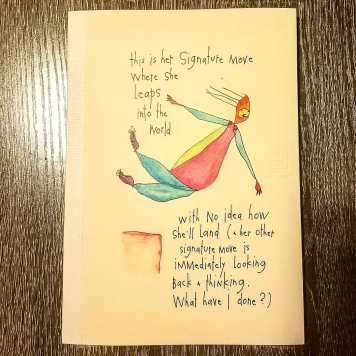 this is her signature move
where she
leaps
into the
world
with no idea how
she'll land (& her other
signature move is
immediately looking
back & thinking,
What have I done?)